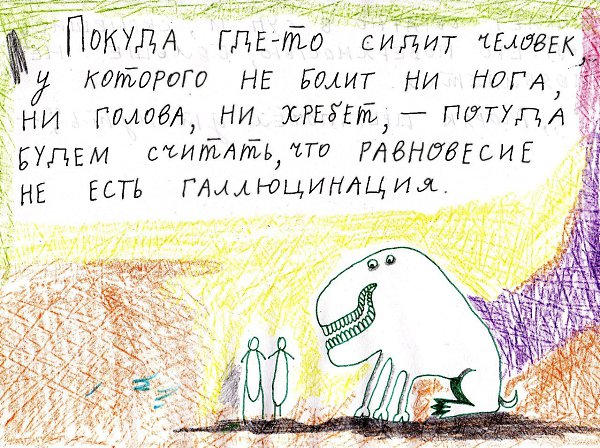 Покуда где-то сидит человек,
у которого не болит ни нога,
ни голова, ни хребет, — потуда
будем считать, что равновесие
не есть галлюцинация.